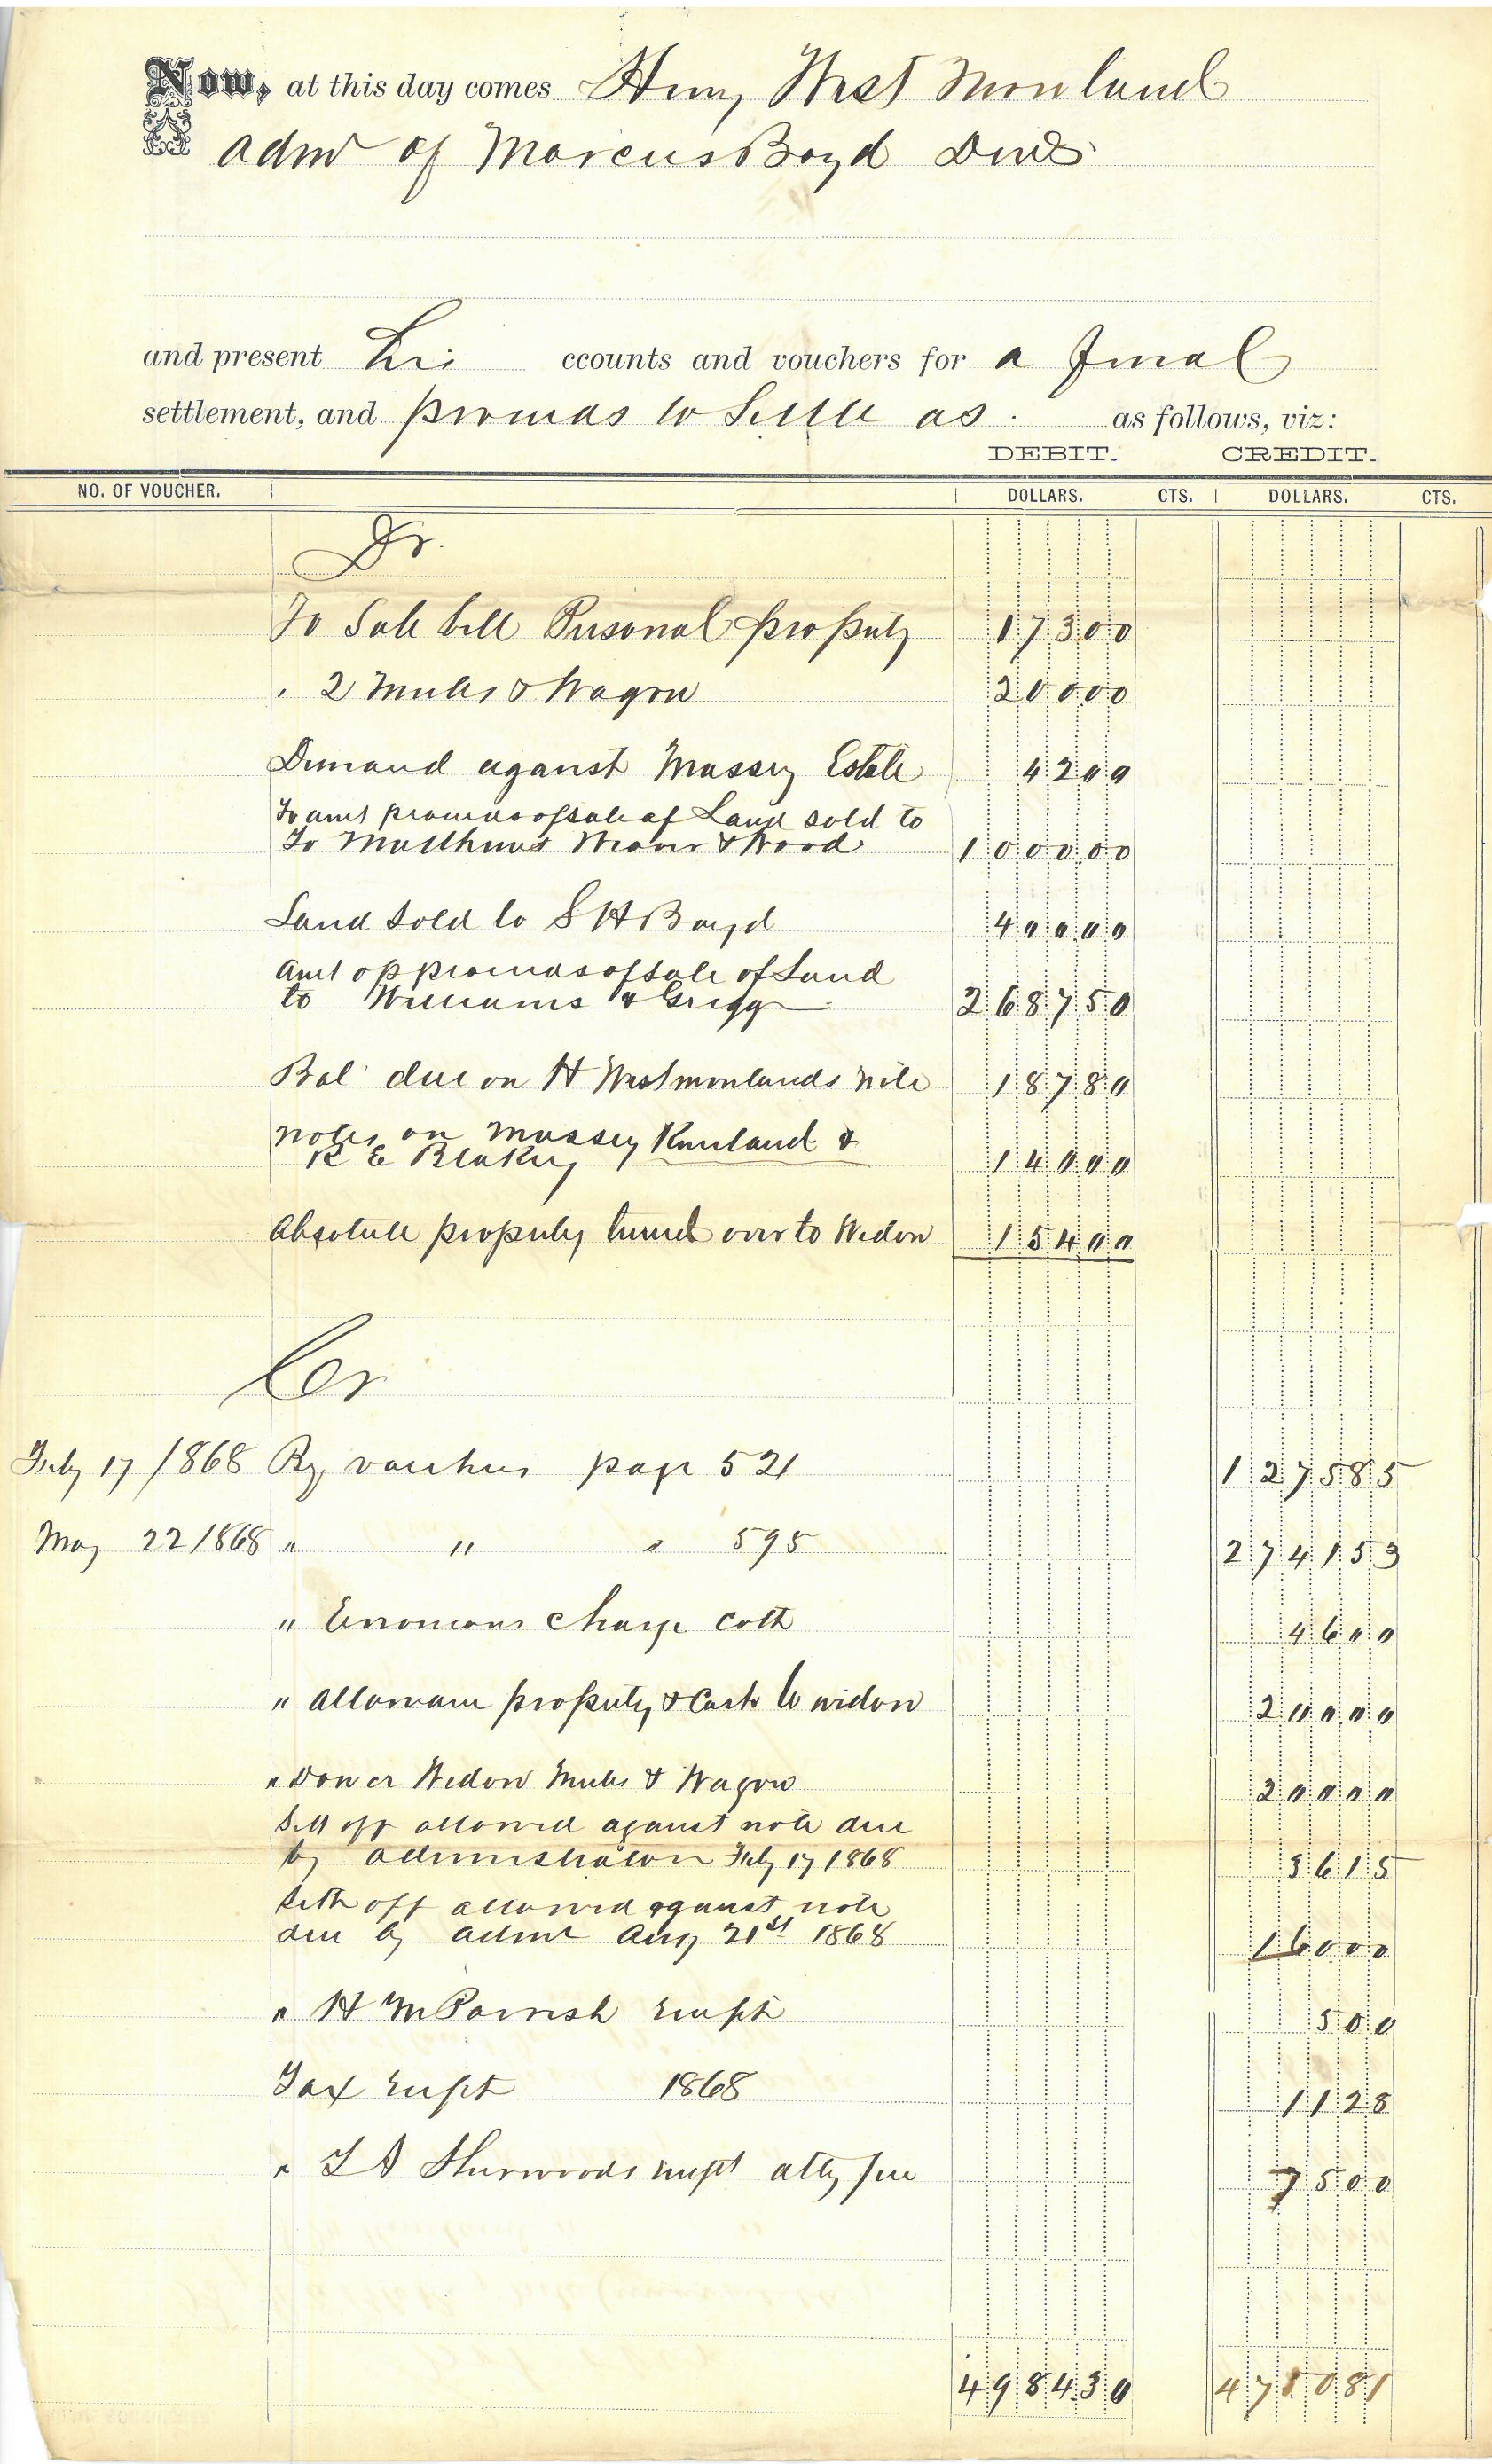 Now, at this day comes Henry West Moreland
Admr of Marcus Boyd Decd
and present his ccounts and vouchers for a final
settlement, and proceeds to settle as as follows, viz:
DEBIT. CREDIT.
NO. OF VOUCHER. DOLLARS. CTS. DOLLARS. CTS.
Dr.
To Sale bill Personal property 17300
" 2 Mules & Wagon 20000
Demand against Massey Estate 4200
To amt proceeds of sale of Land sold to
To Matthews Weaver & Wood 100000
Land sold to S H Boyd 40000
Amt of proceeds of sale of Land
to Williams & Grigg 268750
Bal due on H Westmorlands note 18780
notes on Massey Kneeland &
R E Blakey 14000
Absolute property turned over to Widow 15400
Cr
July 17/1868 By vouchers page 521 127585
May 22/1868 " " " 595 274153
" Erroneous charge Colt 4600
" Allowance property & Cash to widow 20000
" Dower Widow Mules & Wagon 20000
Sett off allowed against note due
by administrator July 17 1868 3615
Sett off allowed against note
due by admr Aug 21st 1868 16000
" H M Parrish receipt 500
Tax receipt 1868 1128
" T A Sherwoods receipt atty fee 7500
498430 475081